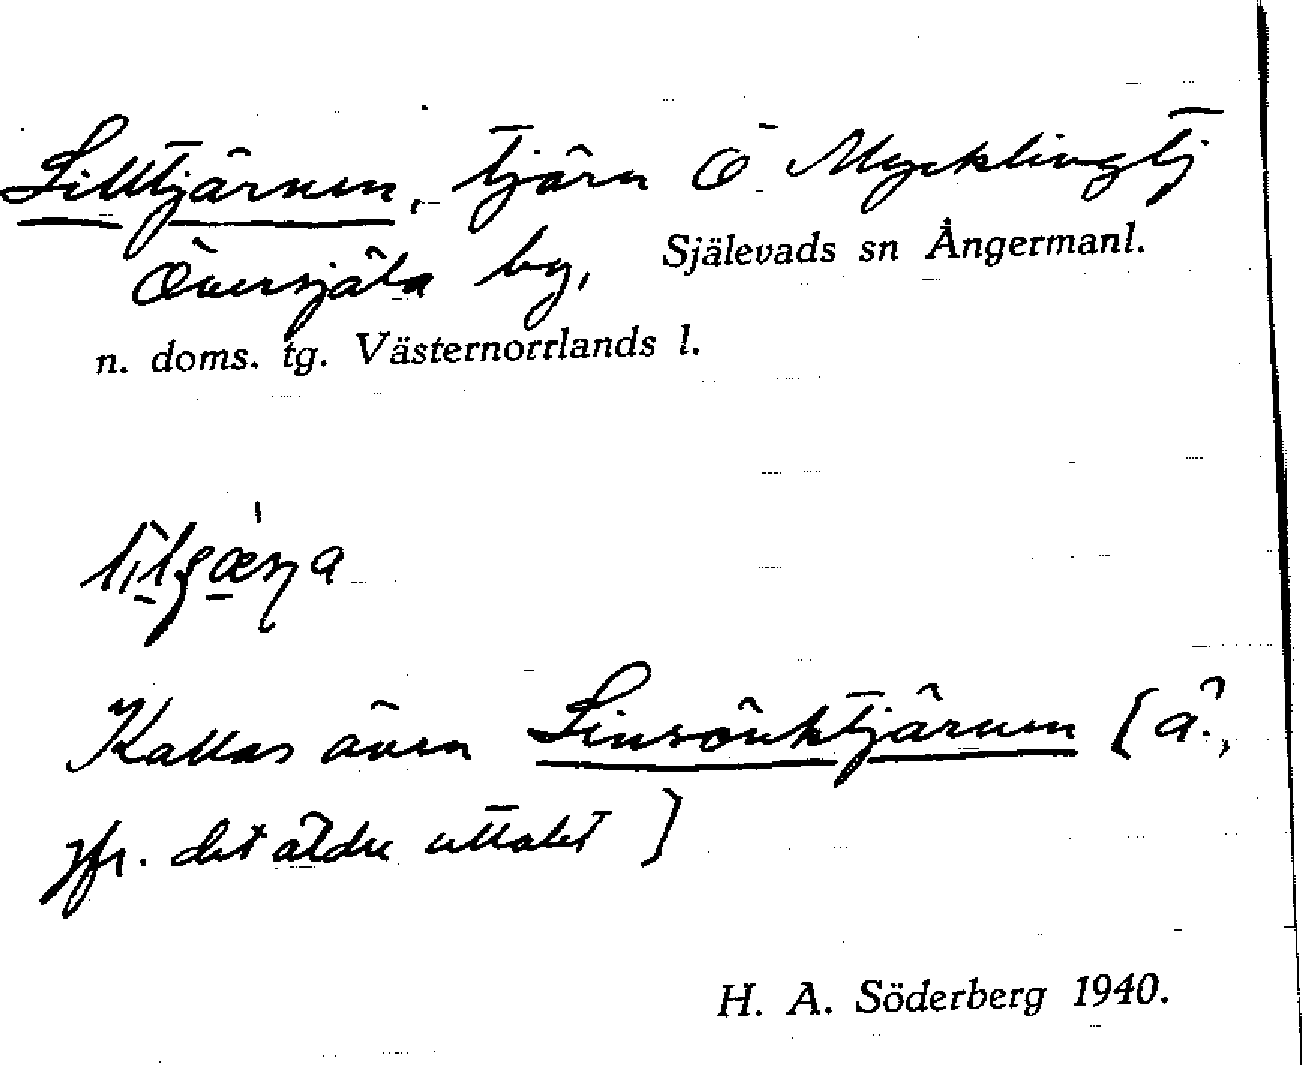 Lilltjärnen, tjärn Ö Mycklingtj
Översjäla by, Själevads sn Ångermanl.
n. doms. tg. Västernorrlands l.
Kallas även Linsänktjärnen [ä?,
jfr. det äldre uttalet]
H. A. Söderberg 1940.